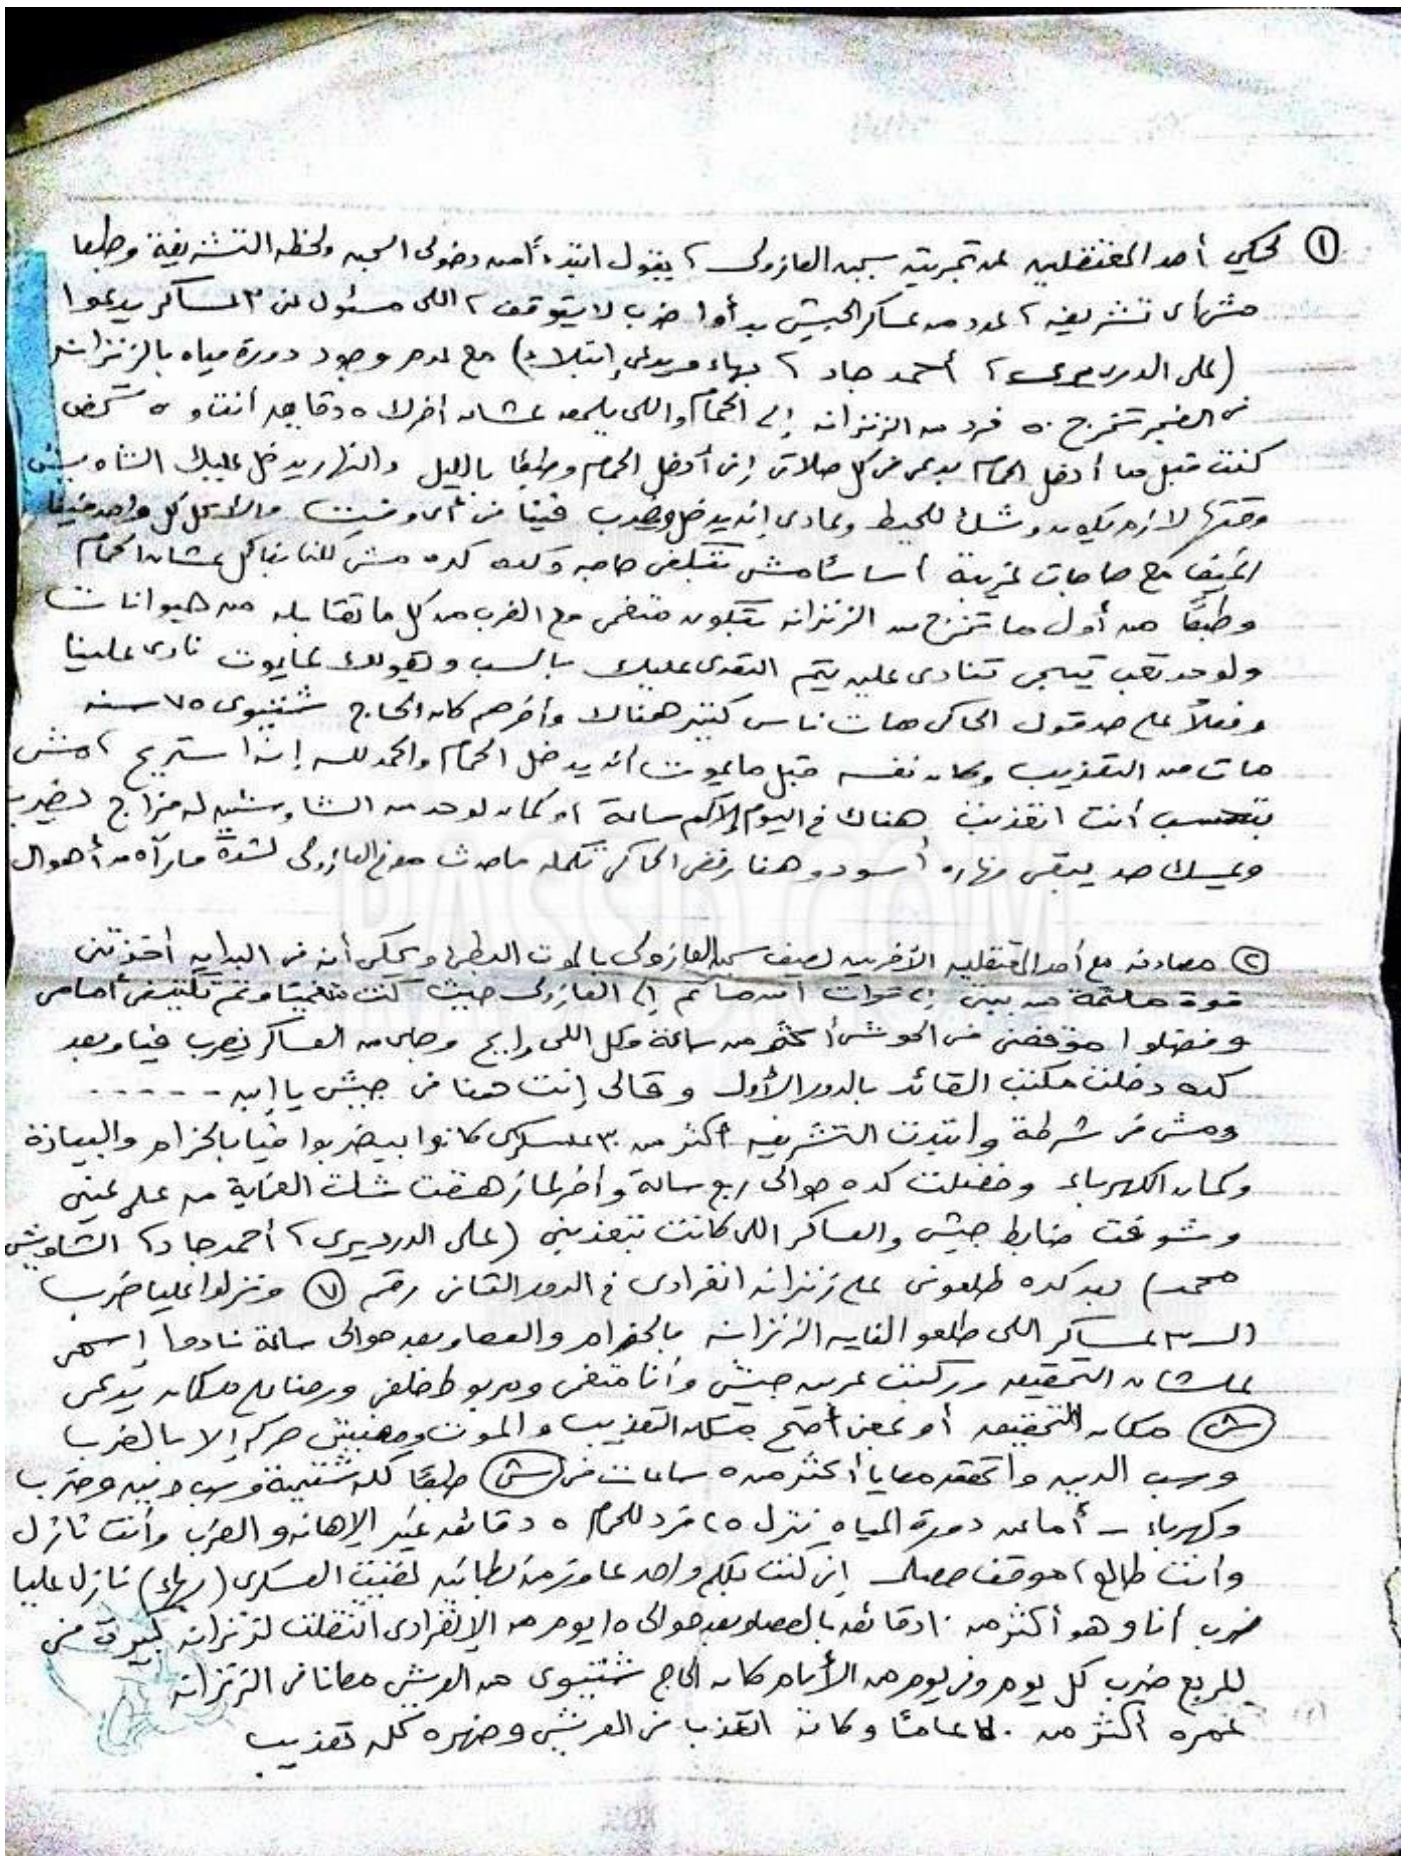 ① يحكي أحد المعتقلين عن تجربته بسجن العازولى، يقول ابتداءً من دخولى السجن ولحظه التشريفة وطبعا
مش أى تشريفه، عدد من عساكر الجيش بدأوا ضرب لا يتوقف، اللى مسئول عن ٣ عساكر يدعوا
(على الدرديرى، أحمد جاد، بهاء ويدعى إبتلاء) مع عدم وجود دورة مياه بالزنزانه
فى الفجر تخرج ٥٠ فرد من الزنزانه إلى الحمام واللى يلحق عشان أخرك ٥ دقايق أنت و ٥
كنت قبل ما أدخل الحمام بدعى فى كل صلاتى إنى أدخل الحمام وطبعًا بالليل والنهار يدخل عليك الشاويش
وقتها لازم يكون وشك للحيط وعادى إنه يدخل ويضرب فينا فى أى وقت والأكل كل واحد
مع حاجات غريبة أساسًا مش بتكفى حاجه وكده كده مش كلنا بناكل عشان الحمام
وطبعًا من أول ما تخرج من الزنزانه بتكون متغمى مع الضرب من كل ما تقابله من حيوانات
ولو حد تعب تيجى تنادى عليه يتم التعدى عليك بالسب ويقولك لما يموت نادى علينا
وفعلاً على حد قول الحاكى مات ناس كتير هناك وأخرهم كان الحاج شتيوى ٧٥ سنه
مات من التعذيب وكان نفسه قبل ما يموت أنه يدخل الحمام والحمد لله إنه استريح، مش
بتحسب أنت اتعذبت هناك فى اليوم إلا كم ساعة أو كمان لو حد من الشاويشيه له مزاج ليضرب
ويمسك حد يبقى نهاره أسود وهنا رفض الحاكى تكملة ما حدث معه فى العازولى لشدة ما رآه من أهوال
② معادنه مع أحد المعتقلين الآخرين لصيف سجن العازولى بالموت البطئ ويحكى أنه فى البدايه أخذتنى
قوة ملثمة من بيتى إلى قوات أمن ثم إلى العازولى حيث كنت متغميًا وتم تكتيفى أمامى
وفضلوا موقفنى فى الحوش أكثر من ساعة وكل اللى رايح وجاى من العساكر يضرب فينا وبعد
كده دخلت مكتب القائد بالدور الأول وقالى إنت هنا فى جيش يا ابن ------
ومش فى شرطة وابتدت التشريفه أكثر من ٣٠ عسكرى كانوا بيضربوا فيا بالحزام والبيادة
وكمان الكهرباء وفضلت كده حوالى ربع ساعة وأخر لما زهقت شلت الغماية من على عينى
وشوفت ضابط جيش والعساكر اللى كانت بتعذبنى (على الدرديرى، أحمد جاد، الشاويش
محمد) بعد كده طلعونى على زنزانه انفرادى فى الدور التانى رقم ⑦ ونزلوا عليا ضرب
الـ ٣ عساكر اللى طلعو الغايه الزنزانه بالحزام والعصا وبعد حوالى ساعة نادوا إسمى
علشان التحقيق وركبت عربيه جيش وأنا متغمى ومربوط خلفى ورحنا على مكان يدعى
(س) مكان التحقيق أو بمعنى أصح مكان التعذيب والموت ومفيش حركه إلا بالضرب
وسب الدين واتحقق معايا أكثر من ٥ ساعات فى (س) طبعًا كله شتيمة وسب دين وضرب
وكهرباء - أما عن دورة المياه نزل ٢٥ فرد للحمام ٥ دقائق غير الإهانه والضرب وأنت نازل
وأنت طالع، موقف حصلى إنى كنت بكلم واحد عاوز منه بطانيه لقيت العسكرى (بهاء) نازل عليا
ضرب أنا وهو أكثر من ١٠ دقائق بالعصا وبعد حوالى ١٥ يوم من الإنفرادى انتقلت لزنزانه كبيرة فى
الرابع ضرب كل يوم وفى يوم من الأيام كان الحاج شتيوى من العريش معانا فى الزنزانه
عمره أكثر من ٧٠ عامًا وكان اتعذب فى العريش وضهره كله تعذيب